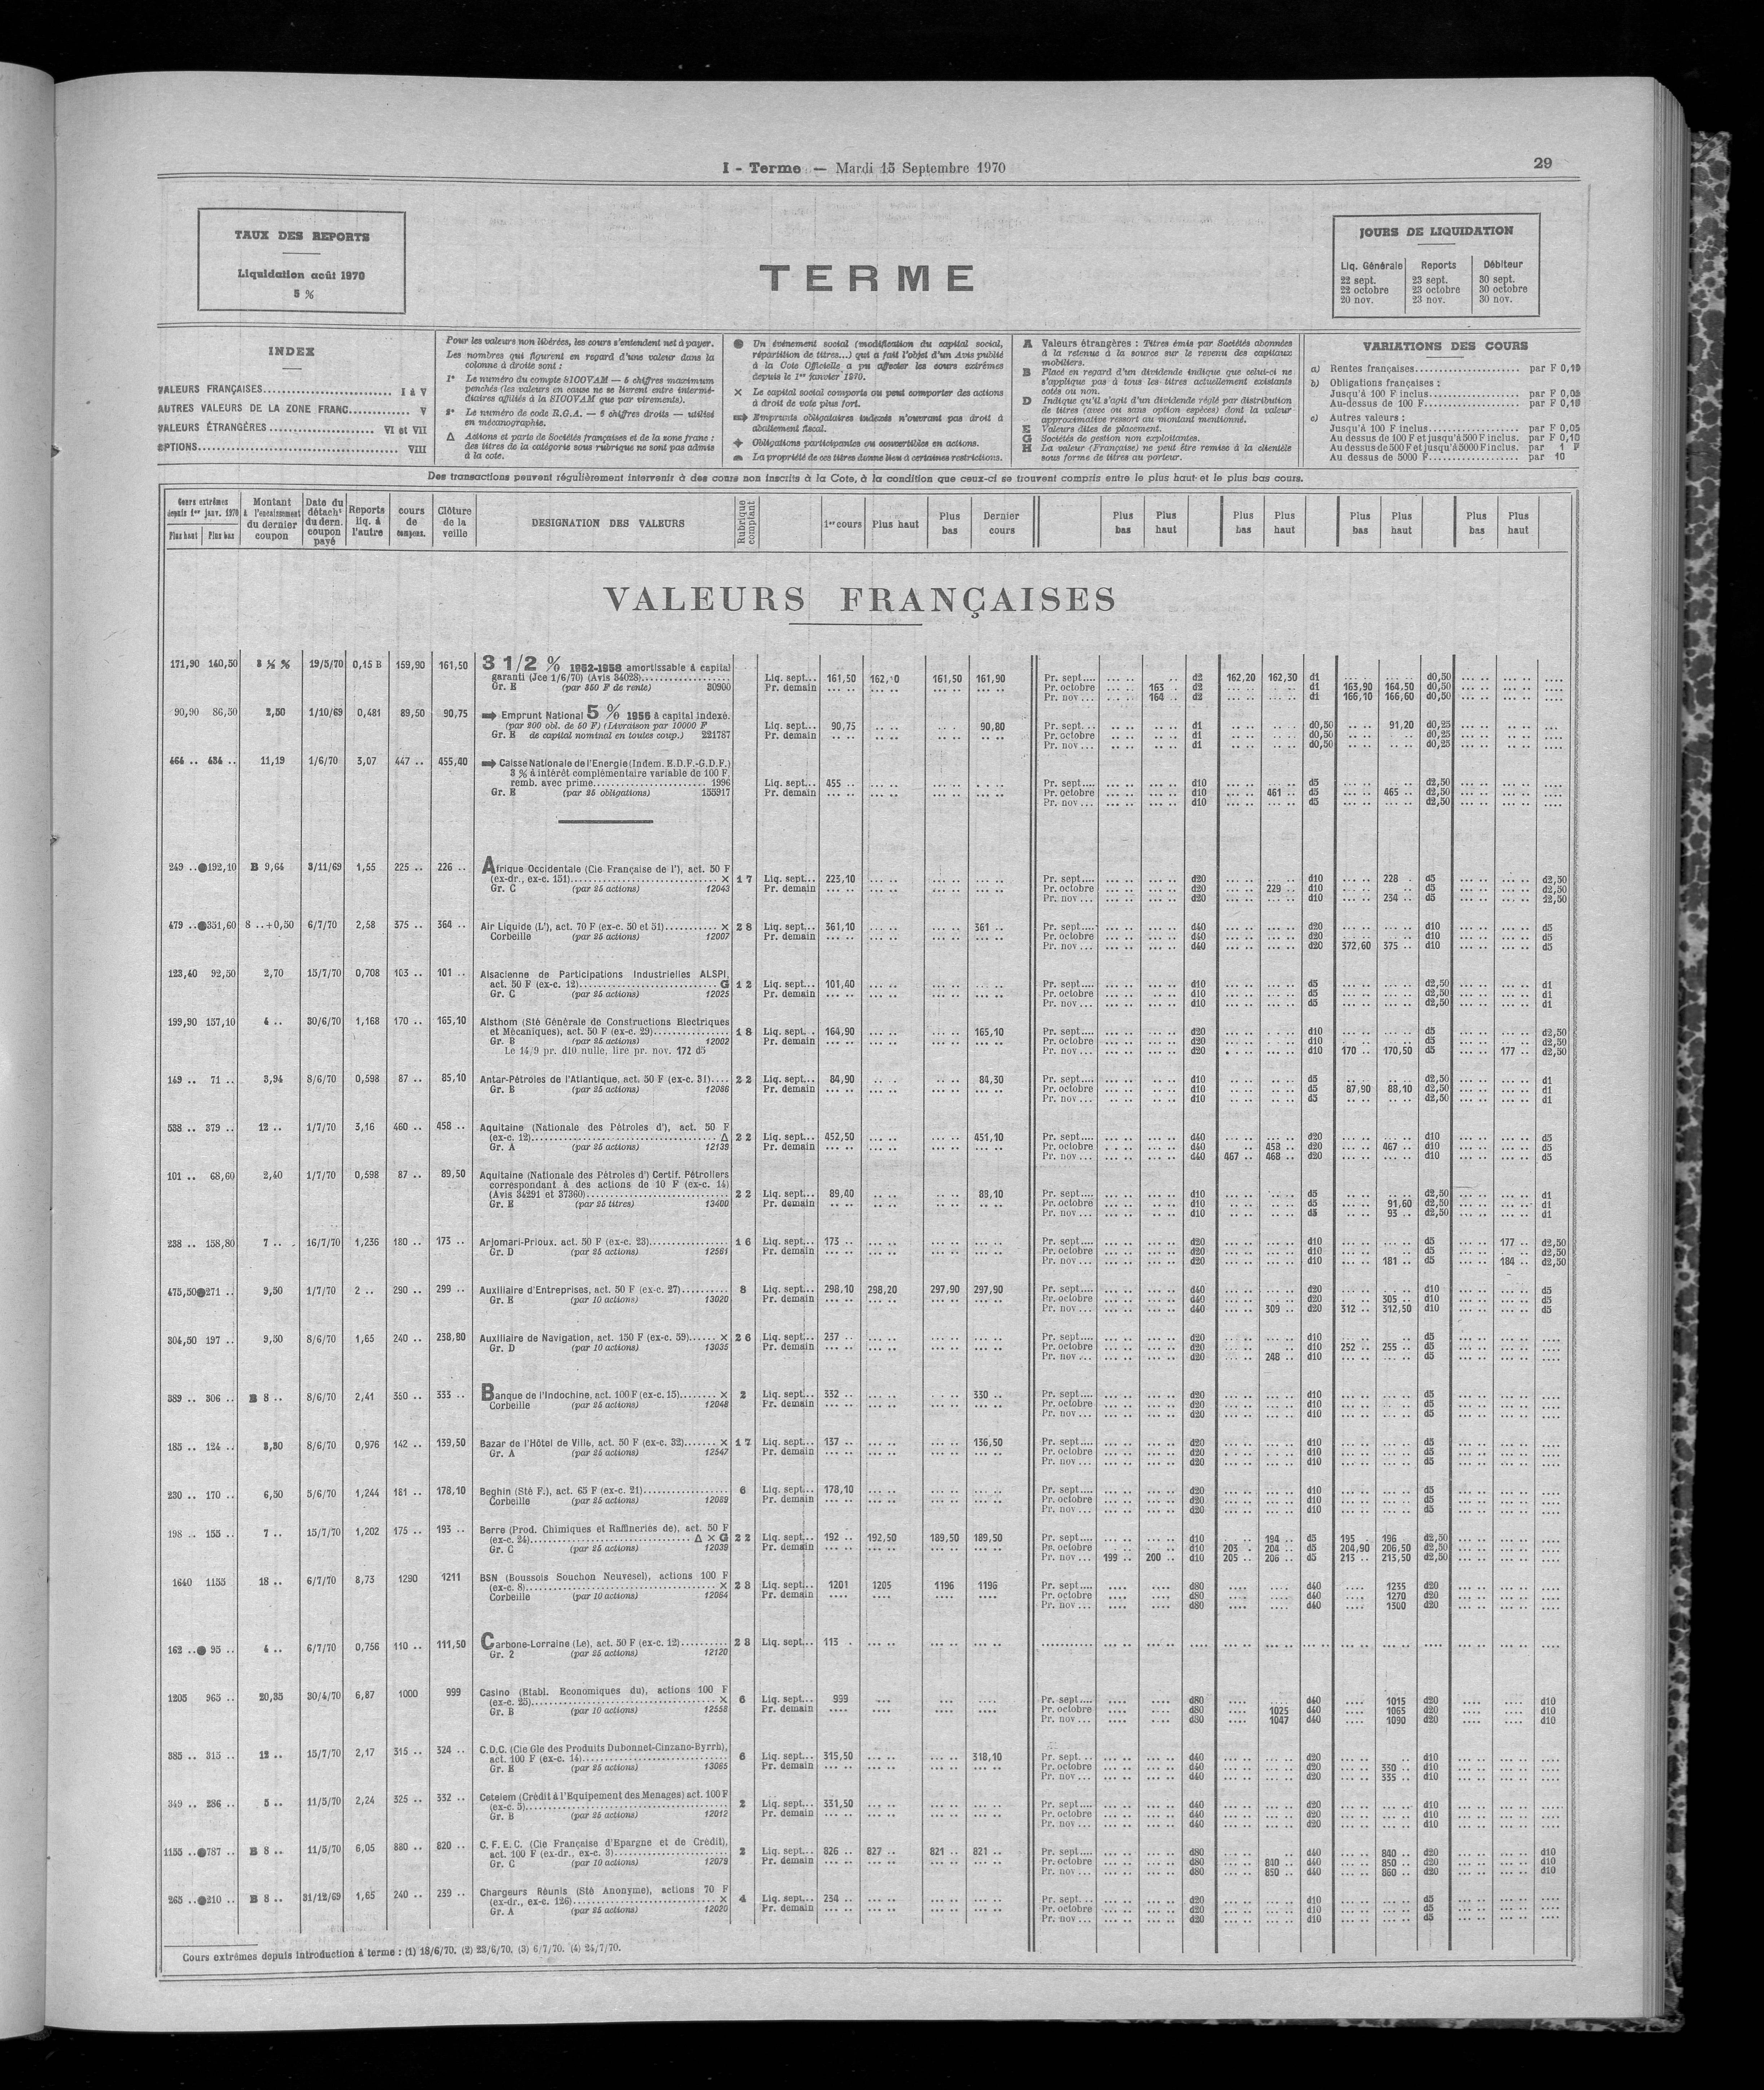 I - Terme — Mardi 15 Septembre 1970
29
TAUX DES REPORTS
Liquidation août 1970
5 %
TERME
JOURS DE LIQUIDATION
Liq. Générale Reports Débiteur
22 sept. 23 sept. 30 sept.
22 octobre 23 octobre 30 octobre
20 nov. 23 nov. 30 nov.
INDEX
VALEURS FRANÇAISES............................... I à V
AUTRES VALEURS DE LA ZONE FRANC............ V
VALEURS ÉTRANGÈRES......................... VI et VII
OPTIONS........................................ VIII
Pour les valeurs non libérées, les cours s'entendent net à payer.
Les nombres qui figurent en regard d'une valeur dans la
colonne à droite sont :
1° Le numéro du compte SICOVAM — 5 chiffres maximum
penchés (les valeurs en cause ne se livrent entre intermé-
diaires affiliés à la SICOVAM que par virements).
2° Le numéro de code R.G.A. — 6 chiffres droits — utilisé
en mécanographie.
Δ Actions et parts de Sociétés françaises et de la zone franc :
des titres de la catégorie sous rubrique ne sont pas admis
à la cote.
● Un événement social (modification du capital social,
répartition de titres...) qui a fait l'objet d'un Avis publié
à la Cote Officielle a pu affecter les cours extrêmes
depuis le 1er janvier 1970.
× Le capital social comporte ou peut comporter des actions
à droit de vote plus fort.
➡ Emprunts obligataires indexés n'ouvrant pas droit à
abattement fiscal.
Obligations participantes ou convertibles en actions.
La propriété de ces titres donne lieu à certaines restrictions.
A Valeurs étrangères : Titres émis par Sociétés abonnées
à la retenue à la source sur le revenu des capitaux
mobiliers.
B Placé en regard d'un dividende indique que celui-ci ne
s'applique pas à tous les titres actuellement existants
cotés ou non.
D Indique qu'il s'agit d'un dividende réglé par distribution
de titres (avec ou sans option espèces) dont la valeur
approximative ressort au montant mentionné.
E Valeurs dites de placement.
G Sociétés de gestion non exploitantes.
H La valeur (Française) ne peut être remise à la clientèle
sous forme de titres au porteur.
VARIATIONS DES COURS
a) Rentes françaises..................... par F 0,10
b) Obligations françaises :
Jusqu'à 100 F inclus.................. par F 0,05
Au-dessus de 100 F................... par F 0,10
c) Autres valeurs :
Jusqu'à 100 F inclus.................. par F 0,05
Au dessus de 100 F et jusqu'à 500 F inclus. par F 0,10
Au dessus de 500 F et jusqu'à 5000 F inclus. par 1 F
Au dessus de 5000 F.................. par 10
Des transactions peuvent régulièrement intervenir à des cours non inscrits à la Cote, à la condition que ceux-ci se trouvent compris entre le plus haut et le plus bas cours.
Cours extrêmes depuis 1er janv. 1970 Plus haut Plus bas | Montant à l'encaissement du dernier coupon | Date du détacht du dern. coupon payé | Reports liq. à l'autre | cours de compens. | Clôture de la veille | DESIGNATION DES VALEURS | Rubrique comptant | 1er cours | Plus haut | Plus bas | Dernier cours | Plus bas | Plus haut | Plus bas | Plus haut | Plus bas | Plus haut | Plus bas | Plus haut
VALEURS FRANÇAISES
171,90 140,50 3 ½ % 19/5/70 0,15 B 159,90 161,50 3 1/2 % 1952-1958 amortissable à capital
garanti (Jce 1/6/70) (Avis 34028).................. Liq. sept... 161,50 161,50 161,90 Pr. sept.... d2 162,20 162,30 d1 d0,50
Gr. E (par 350 F de rente) 30900 Pr. demain Pr. octobre 163 d2 d1 163,90 164,50 d0,50
Pr. nov... 164 d2 d1 166,10 166,60 d0,50
90,90 86,50 2,50 1/10/69 0,481 89,50 90,75 ➡ Emprunt National 5 % 1956 à capital indexé.
(par 200 obl. de 50 F) (Livraison par 10000 F Liq. sept... 90,75 90,80 Pr. sept... d1 d0,50 91,20 d0,25
Gr. E de capital nominal en toutes coup.) 221787 Pr. demain Pr. octobre d1 d0,50 d0,25
Pr. nov... d1 d0,50 d0,25
464 .. 434 .. 11,19 1/6/70 3,07 447 .. 455,40 ➡ Caisse Nationale de l'Energie (Indem. E.D.F.-G.D.F.)
3 % à intérêt complémentaire variable de 100 F,
remb. avec prime........................ 1996 Liq. sept... 455 .. Pr. sept.... d10 d5 d2,50
Gr. E (par 25 obligations) 155917 Pr. demain Pr. octobre d10 461 .. d5 465 .. d2,50
Pr. nov... d10 d5 d2,50
249 ..●192,10 B 9,64 3/11/69 1,55 225 .. 226 .. Afrique Occidentale (Cie Française de l'), act. 50 F
(ex-dr., ex-c. 151)............................ × 17 Liq. sept... 223,10 Pr. sept.... d20 d10 228 d5 d2,50
Gr. C (par 25 actions) 12043 Pr. demain Pr. octobre d20 229 .. d10 d5 d2,50
Pr. nov... d20 d10 234 .. d5 d2,50
479 ..●351,60 8 ..+0,50 6/7/70 2,58 375 .. 364 .. Air Liquide (L'), act. 70 F (ex-c. 50 et 51)........... × 28 Liq. sept... 361,10 361 .. Pr. sept.... d40 d20 d10 d5
Corbeille (par 25 actions) 12007 Pr. demain Pr. octobre d40 d20 d10 d5
Pr. nov... d40 d20 372,60 375 .. d10 d5
123,40 92,50 2,70 15/7/70 0,708 103 .. 101 .. Alsacienne de Participations Industrielles ALSPI,
act. 50 F (ex-c. 12)............................ G 12 Liq. sept... 101,40 Pr. sept.... d10 d5 d2,50 d1
Gr. C (par 25 actions) 12025 Pr. demain Pr. octobre d10 d5 d2,50 d1
Pr. nov... d10 d5 d2,50 d1
199,90 157,10 4 .. 30/6/70 1,168 170 .. 165,10 Alsthom (Sté Générale de Constructions Electriques
et Mécaniques), act. 50 F (ex-c. 29)............... 18 Liq. sept... 164,90 165,10 Pr. sept.... d20 d10 d5 d2,50
Gr. B (par 25 actions) 12002 Pr. demain Pr. octobre d20 d10 d5 d2,50
Le 14/9 pr. d10 nulle, lire pr. nov. 172 d5 Pr. nov... d20 d10 170 .. 170,50 d5 177 .. d2,50
149 .. 71 .. 3,94 8/6/70 0,598 87 .. 85,10 Antar-Pétroles de l'Atlantique, act. 50 F (ex-c. 31).... 22 Liq. sept... 84,90 84,30 Pr. sept.... d10 d5 d2,50 d1
Gr. B (par 25 actions) 12086 Pr. demain Pr. octobre d10 d5 87,90 88,10 d2,50 d1
Pr. nov... d10 d5 d2,50 d1
538 .. 379 .. 12 .. 1/7/70 3,16 460 .. 458 .. Aquitaine (Nationale des Pétroles d'), act. 50 F
(ex-c. 12)...................................... Δ 22 Liq. sept... 452,50 451,10 Pr. sept.... d40 d20 d10 d5
Gr. A (par 25 actions) 12139 Pr. demain Pr. octobre d40 458 .. d20 467 .. d10 d5
Pr. nov... d40 467 .. 468 .. d20 d10 d5
101 .. 68,60 2,40 1/7/70 0,598 87 .. 89,50 Aquitaine (Nationale des Pétroles d') Certif. Pétroliers
correspondant à des actions de 10 F (ex-c. 14)
(Avis 34291 et 37360)............................. 22 Liq. sept... 89,40 88,10 Pr. sept.... d10 d5 d2,50 d1
Gr. E (par 25 titres) 13400 Pr. demain Pr. octobre d10 d5 91,60 d2,50 d1
Pr. nov... d10 d5 93 .. d2,50 d1
238 .. 158,80 7 .. 16/7/70 1,236 180 .. 173 .. Arjomari-Prioux, act. 50 F (ex-c. 23)................ 16 Liq. sept... 173 .. Pr. sept.... d20 d10 d5 177 .. d2,50
Gr. D (par 25 actions) 12561 Pr. demain Pr. octobre d20 d10 d5 d2,50
Pr. nov... d20 d10 181 .. d5 184 .. d2,50
475,50●271 .. 9,50 1/7/70 2 .. 290 .. 299 .. Auxiliaire d'Entreprises, act. 50 F (ex-c. 27).......... 8 Liq. sept... 298,10 298,20 297,90 297,90 Pr. sept.... d40 d20 d10 d5
Gr. E (par 10 actions) 13020 Pr. demain Pr. octobre d40 d20 305 .. d10 d5
Pr. nov... d40 309 .. d20 312 .. 312,50 d10 d5
304,50 197 .. 9,50 8/6/70 1,65 240 .. 238,80 Auxiliaire de Navigation, act. 150 F (ex-c. 59)...... × 26 Liq. sept... 237 .. Pr. sept.... d20 d10 d5
Gr. D (par 10 actions) 13035 Pr. demain Pr. octobre d20 d10 252 .. 255 .. d5
Pr. nov... d20 248 .. d10 d5
389 .. 306 .. B 8 .. 8/6/70 2,41 350 .. 333 .. Banque de l'Indochine, act. 100 F (ex-c. 15)........ × 2 Liq. sept... 332 .. 330 .. Pr. sept.... d20 d10 d5
Corbeille (par 25 actions) 12048 Pr. demain Pr. octobre d20 d10 d5
Pr. nov... d20 d10 d5
185 .. 124 .. 3,30 8/6/70 0,976 142 .. 139,50 Bazar de l'Hôtel de Ville, act. 50 F (ex-c. 32)....... × 17 Liq. sept... 137 .. 136,50 Pr. sept.... d20 d10 d5
Gr. A (par 25 actions) 12547 Pr. demain Pr. octobre d20 d10 d5
Pr. nov... d20 d10 d5
230 .. 170 .. 6,50 5/6/70 1,244 181 .. 178,10 Beghin (Sté F.), act. 65 F (ex-c. 21)................. 6 Liq. sept... 178,10 Pr. sept.... d20 d10 d5
Corbeille (par 25 actions) 12089 Pr. demain Pr. octobre d20 d10 d5
Pr. nov... d20 d10 d5
198 .. 155 .. 7 .. 15/7/70 1,202 175 .. 193 .. Berre (Prod. Chimiques et Raffineries de), act. 50 F
(ex-c. 24)................................. Δ × G 22 Liq. sept... 192 .. 192,50 189,50 189,50 Pr. sept.... d10 194 .. d5 195 196 .. d2,50
Gr. C (par 25 actions) 12039 Pr. demain Pr. octobre d10 203 .. 204 .. d5 204,90 206,50 d2,50
Pr. nov... 199 .. 200 .. d10 205 .. 206 .. d5 213 .. 213,50 d2,50
1640 1155 18 .. 6/7/70 8,73 1290 1211 BSN (Boussois Souchon Neuvesel), actions 100 F
(ex-c. 8)....................................... × 28 Liq. sept... 1201 1205 1196 1196 Pr. sept.... d80 d40 1235 d20
Corbeille (par 10 actions) 12064 Pr. demain Pr. octobre d80 d40 1270 d20
Pr. nov... d80 d40 1300 d20
162 ..● 95 .. 4 .. 6/7/70 0,756 110 .. 111,50 Carbone-Lorraine (Le), act. 50 F (ex-c. 12).......... 28 Liq. sept... 113 .
Gr. 2 (par 25 actions) 12120
1205 965 .. 20,35 30/4/70 6,87 1000 999 Casino (Etabl. Economiques du), actions 100 F
(ex-c. 25)...................................... × 6 Liq. sept... 999 Pr. sept.... d80 d40 1015 d20 d10
Gr. B (par 10 actions) 12558 Pr. demain Pr. octobre d80 1025 d40 1065 d20 d10
Pr. nov... d80 1047 d40 1090 d20 d10
385 .. 315 .. 12 .. 15/7/70 2,17 315 .. 324 .. C.D.C. (Cie Gle des Produits Dubonnet-Cinzano-Byrrh),
act. 100 F (ex-c. 14).............................. 6 Liq. sept... 315,50 318,10 Pr. sept... d40 d20 d10
Gr. E (par 25 actions) 13065 Pr. demain Pr. octobre d40 d20 330 .. d10
Pr. nov... d40 d20 335 .. d10
349 .. 286 .. 5 .. 11/5/70 2,24 325 .. 332 .. Cetelem (Crédit à l'Equipement des Menages) act. 100 F
(ex-c. 5)........................................ 2 Liq. sept... 331,50 Pr. sept.... d40 d20 d10
Gr. B (par 25 actions) 12012 Pr. demain Pr. octobre d40 d20 d10
Pr. nov... d40 d20 d10
1155 ..●787 .. B 8 .. 11/5/70 6,05 880 .. 820 .. C. F. E. C. (Cie Française d'Epargne et de Crédit),
act. 100 F (ex-dr., ex-c. 3)........................ 2 Liq. sept... 826 .. 827 .. 821 .. 821 .. Pr. sept.... d80 d40 840 .. d20 d10
Gr. C (par 10 actions) 12079 Pr. demain Pr. octobre d80 840 .. d40 850 .. d20 d10
Pr. nov... d80 850 .. d40 860 .. d20 d10
265 ..●210 .. B 8 .. 31/12/69 1,65 240 .. 239 .. Chargeurs Réunis (Sté Anonyme), actions 70 F
(ex-dr., ex-c. 126)............................. × 4 Liq. sept... 234 .. Pr. sept... d20 d10 d5
Gr. A (par 25 actions) 12020 Pr. demain Pr. octobre d20 d10 d5
Pr. nov... d20 d10 d5
Cours extrêmes depuis introduction à terme : (1) 18/6/70. (2) 23/6/70. (3) 6/7/70. (4) 24/7/70.